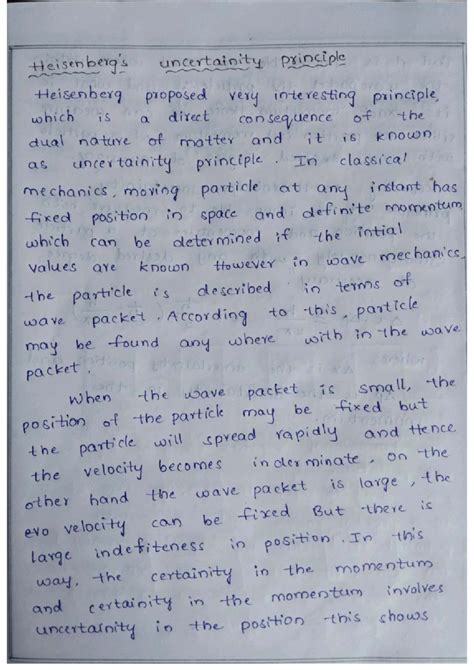 Heisenberg's uncertainity principle
Heisenberg proposed very interesting principle,
which is a direct consequence of the
dual nature of matter and it is known
as uncertainity principle. In classical
mechanics, moving particle at any instant has
fixed position in space and definite momentum
which can be determined if the intial
values are known However in wave mechanics
the particle is described in terms of
wave packet. According to this, particle
may be found any where with in the wave
packet.
When the wave packet is small, the
position of the particle may be fixed but
the particle will spread rapidly and Hence
the velocity becomes inderminate. on the
other hand the wave packet is large, the
evo velocity can be fixed But there is
large indefiteness in position. In this
way, the certainity in the momentum
and certainity in the momentum involves
uncertainity in the position this shows